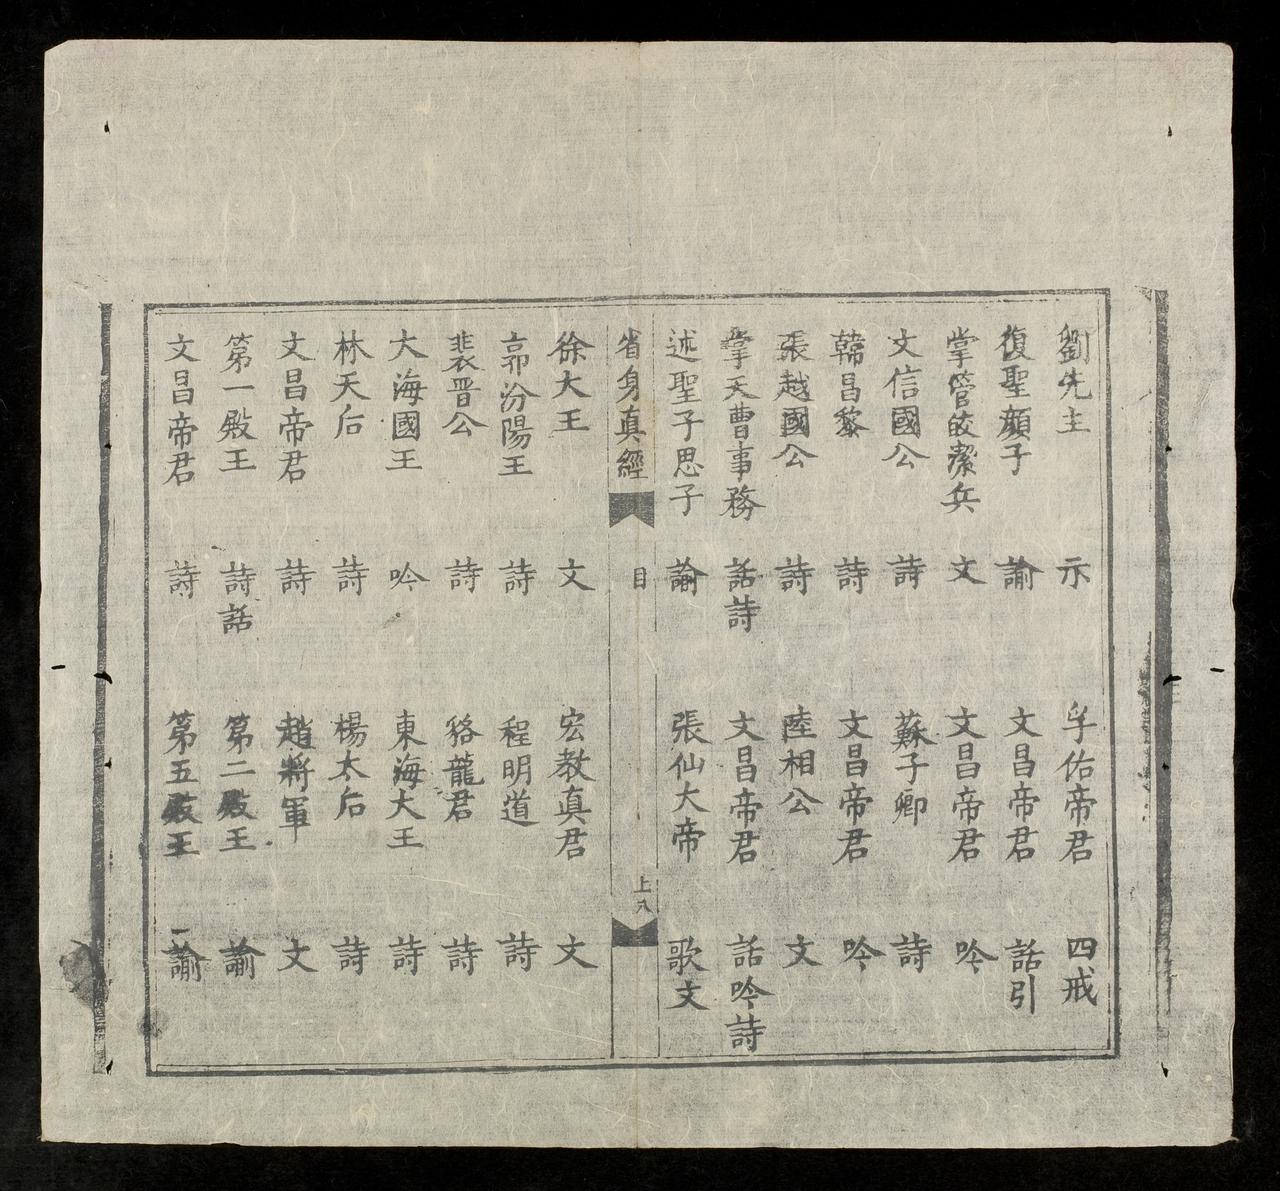 劉先主 示 孚佑帝君 四戒
復聖顏子 諭 文昌帝君 話引
掌管皎潔兵 文 文昌帝君 吟
文信國公 詩 蘇子卿 詩
韓昌黎 詩 文昌帝君 吟
張越國公 詩 陸相公 文
掌天曹事務 話詩 文昌帝君 話吟詩
述聖子思子 諭 張仙大帝 歌文
省身真經 目 上八
徐大王 文 宏教真君 文
郭汾陽王 詩 程明道 詩
裴晋公 詩 狢龍君 詩
大海國王 吟 東海大王 詩
林天后 詩 楊太后 詩
文昌帝君 詩 趙將軍 文
第一殿王 詩話 第二殿王 諭
文昌帝君 詩 第五殿王 諭